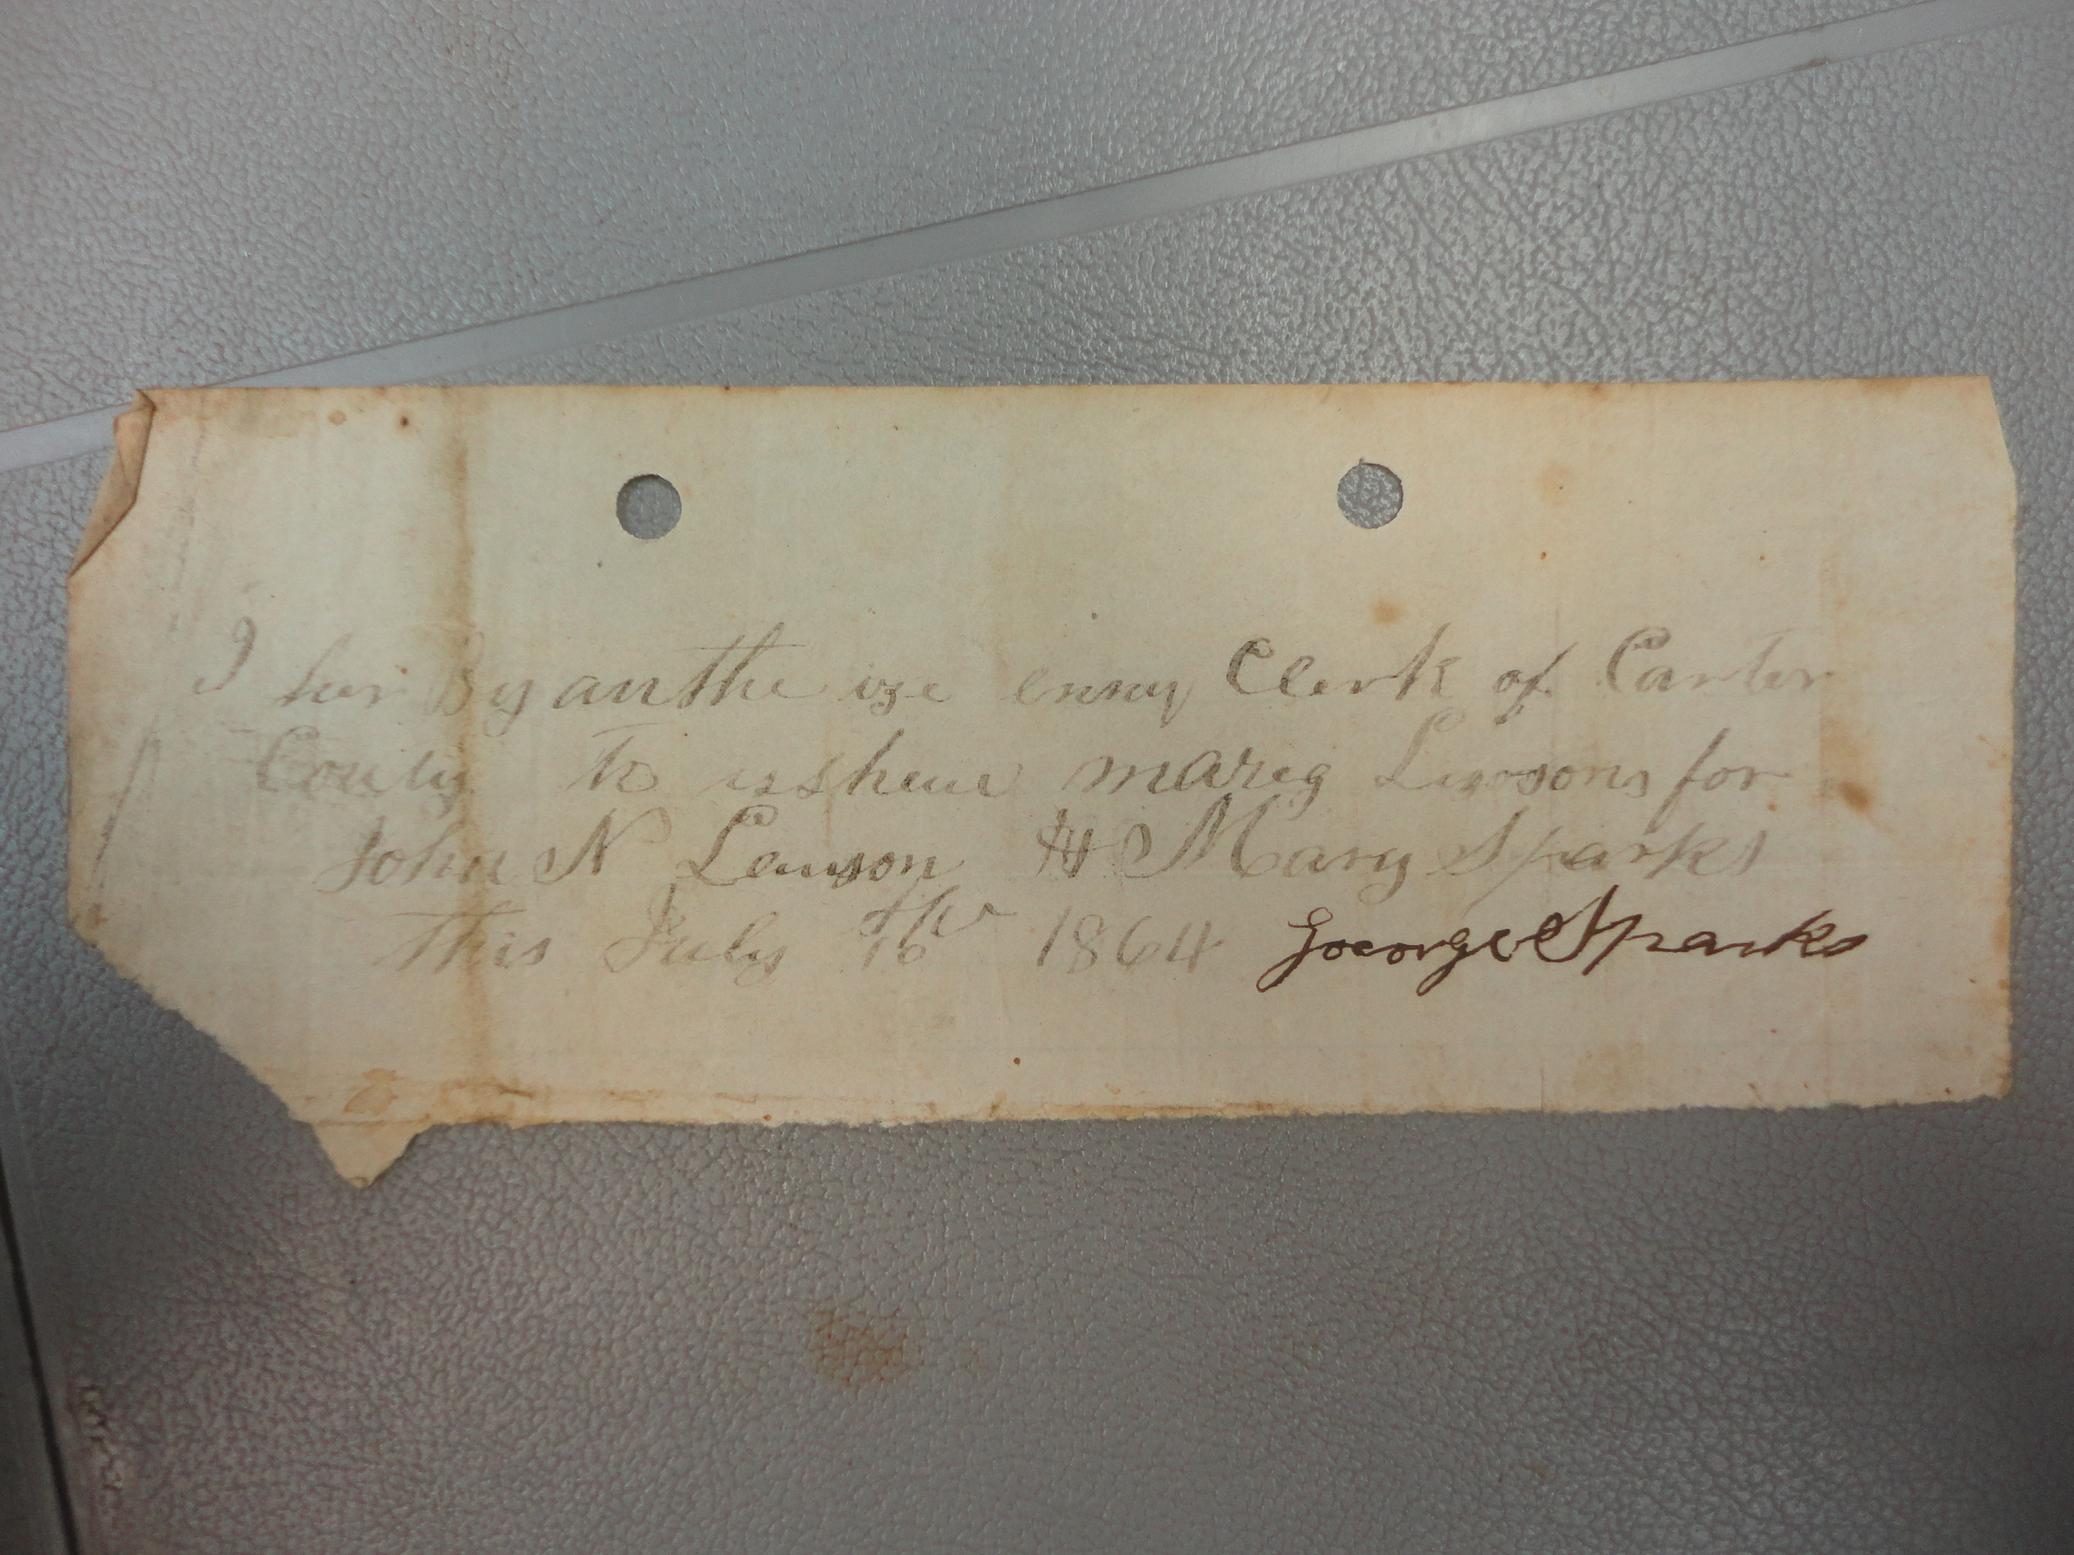 I her By authe ize enny Clerk of Carter
County to issheue mareg Lissons for
John N Lawson & Mary Sparks
this July 16th 1864 George Sparks